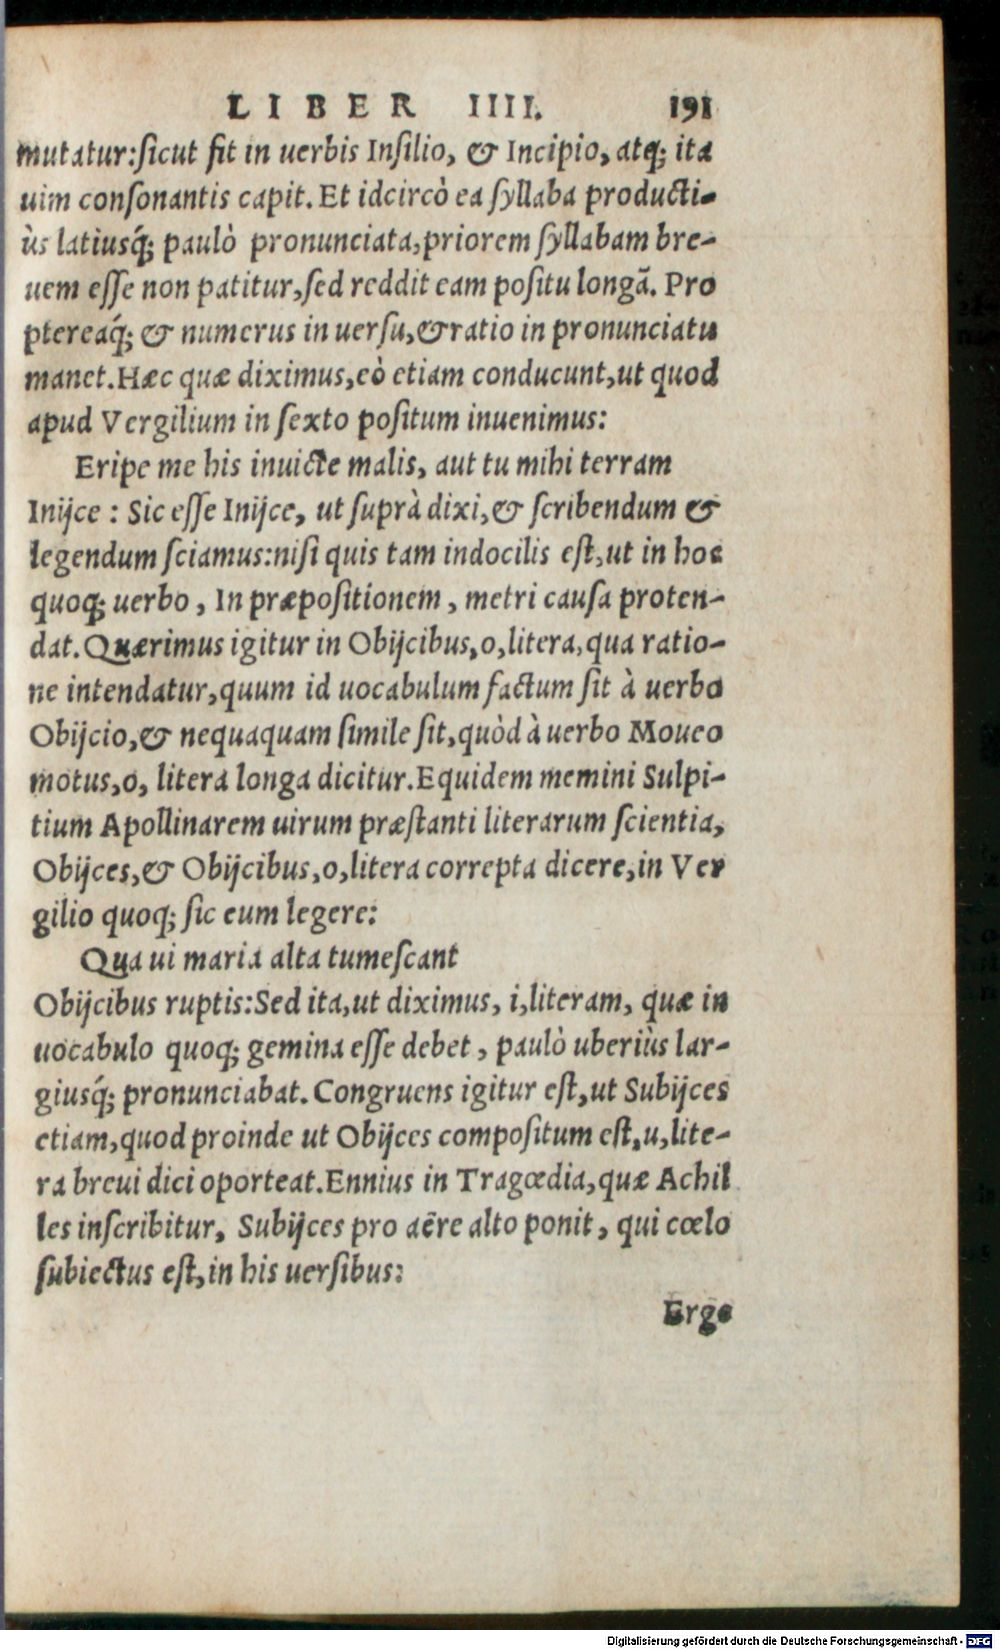 LIBER IIII. 191
mutatur:ſicut fit in uerbis Inſilio, & Incipio, atq; ita
uim conſonantis capit. Et idcircò ea ſyllaba producti-
ùs latiusq́; paulò pronunciata,priorem ſyllabam bre-
uem eſſe non patitur,ſed reddit eam poſitu longā. Pro
ptereaq́; & numerus in uerſu,& ratio in pronunciatu
manet.Hæc quæ diximus,eò etiam conducunt,ut quod
apud Vergilium in ſexto poſitum inuenimus:
Eripe me his inuicte malis, aut tu mihi terram
Inijce : Sic eſſe Inijce, ut ſuprà dixi,& ſcribendum &
legendum ſciamus:niſi quis tam indocilis eſt,ut in hoc
quoq; uerbo, In præpoſitionem, metri cauſa proten-
dat.Quærimus igitur in Obijcibus,o,litera,qua ratio-
ne intendatur,quum id uocabulum factum ſit à uerbo
Obijcio,& nequaquam ſimile ſit,quòd à uerbo Moueo
motus,o, litera longa dicitur.Equidem memini Sulpi-
tium Apollinarem uirum præſtanti literarum ſcientia,
Obijces,& Obijcibus,o,litera correpta dicere,in Ver
gilio quoq; ſic eum legere:
Qua ui maria alta tumeſcant
Obijcibus ruptis:Sed ita,ut diximus, i,literam, quæ in
uocabulo quoq; gemina eſſe debet, paulò uberiùs lar-
giusq́; pronunciabat. Congruens igitur eſt,ut Subijces
etiam,quod proinde ut Obijces compoſitum eſt,u,lite-
ra breui dici oporteat.Ennius in Tragœdia,quæ Achil
les inſcribitur, Subijces pro aëre alto ponit, qui cœlo
ſubiectus eſt,in his uerſibus:
Ergo
Digitalisierung gefördert durch die Deutsche Forschungsgemeinschaft - DFG